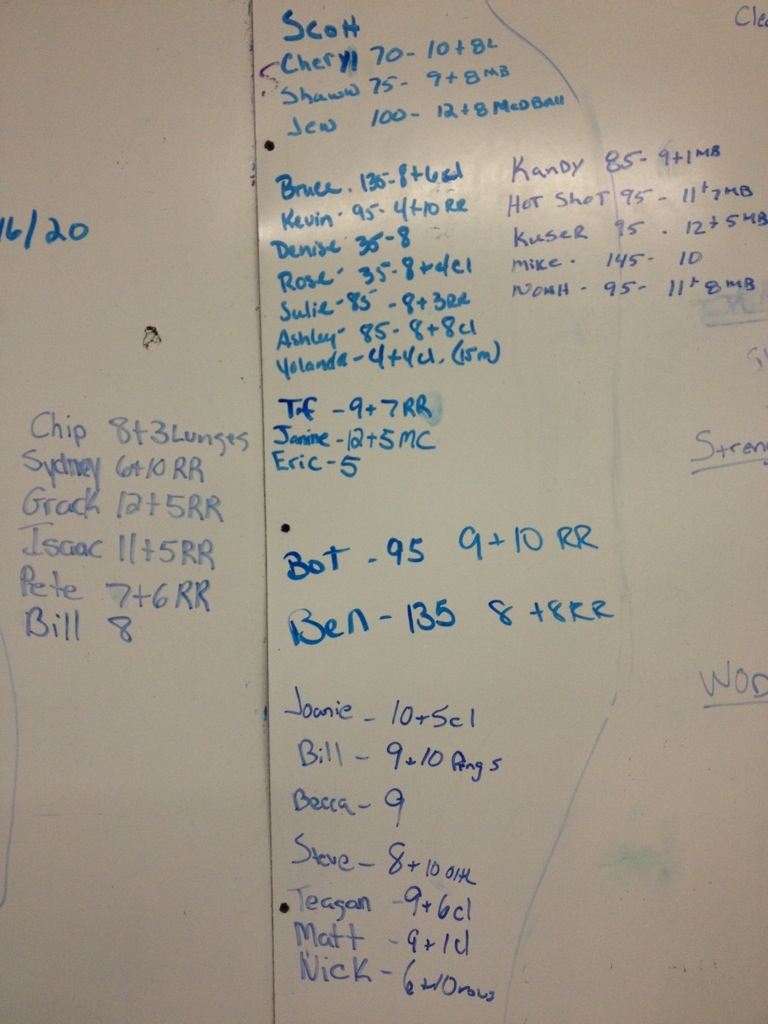 16/20
Chip 8+3 Lunges
Sydney 6+10 RR
Grack 12+5RR
Isaac 11+5RR
Pete 7+6 RR
Bill 8
Scott
Cheryl 70- 10+8L
Shaww 75- 9+8 MB
Jew 100- 12+8 Med Ball
Bruce. 135-8+6cl
Kevin- 95-4+10 RR
Denise 35-8
Rose- 35-8+4cl
Sulie-85 -8+3RR
Ashley- 85-8+8cl
Yolanda-4+4cl. (15m)
-9+7RR
Janine-12+5MC
Eric-5
Bot - 95 9+10 RR
Ben - 135 8 +8RR
Joanie - 10+5cl
Bill - 9+10 Rings
Becca - 9
Steve - 8+10
Teagan -9+6cl
Matt -9+1cl
Nick - 6+10rows
Kandy 85- 9+1 MB
Hot Shot 95 - 11+7MB
Kuser 95 . 12+5MB
mike - 145- 10
NOAH - 95- 11+8MB
Cle
Stren
WOD